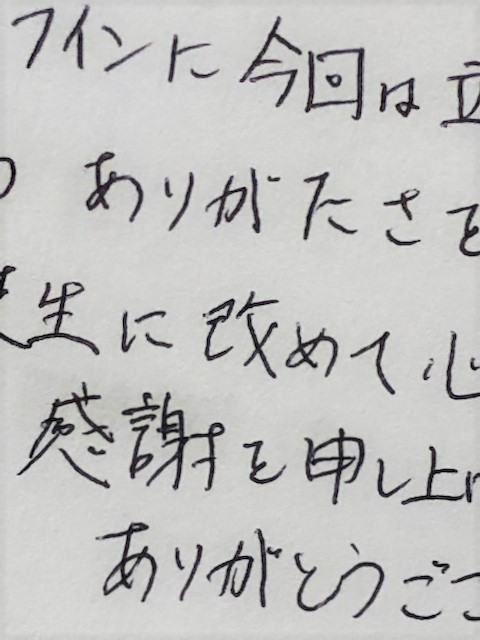 フインに今回は立
ありがたさを
先生に改めて心
感謝を申し上げ
ありがとうござ